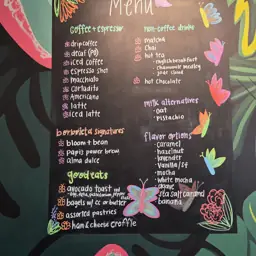 Menu
coffee + espresso
drip coffee
decaf
iced coffee
espresso shot
macchiato
cortadito
Americano
latte
iced latte
non-coffee drinks
matcha
chai
hot tea
english breakfast
chamomile medley
jade cloud
hot chocolate
milk alternatives
oat
pistachio
signatures
bloom + bean
papi's power brew
alma dulce
flavor options
caramel
hazelnut
lavender
vanilla / sf
mocha
white mocha
sea salt caramel
banana
good eats
avocado toast
bagels w/ cc or butter
assorted pastries
ham & cheese croffle